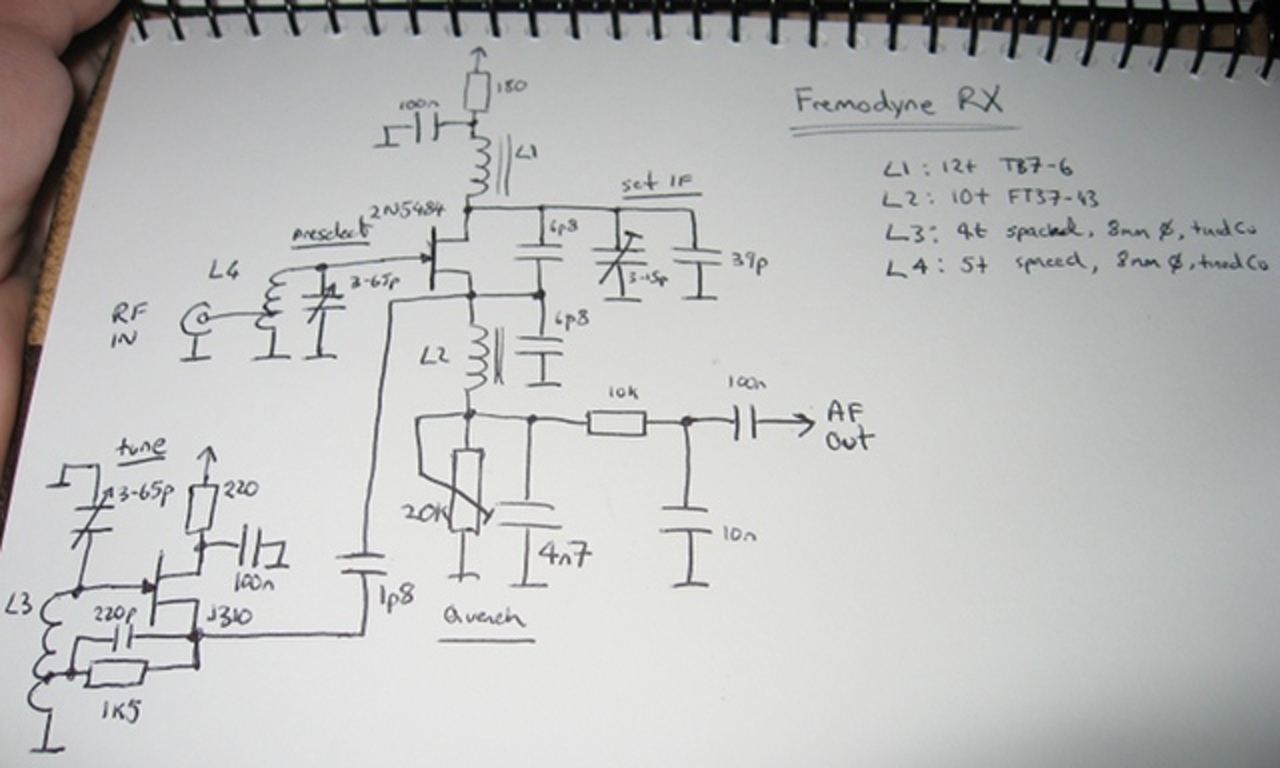 Fremodyne RX
L1: 12t T37-6
L2: 10t FT37-43
L3: 4t spaced, 8mm Ø, tinned Cu
L4: 5t spaced, 8mm Ø, tinned Cu
180
100n
L1
2N5484
set IF
preselect
6p8
L4
3-65p
3-15p
39p
RF
IN
6p8
L2
10k
100n
AF
Out
tune
3-65p
220
20K
4n7
10n
100n
L3
220p
J310
1p8
Quench
1K5